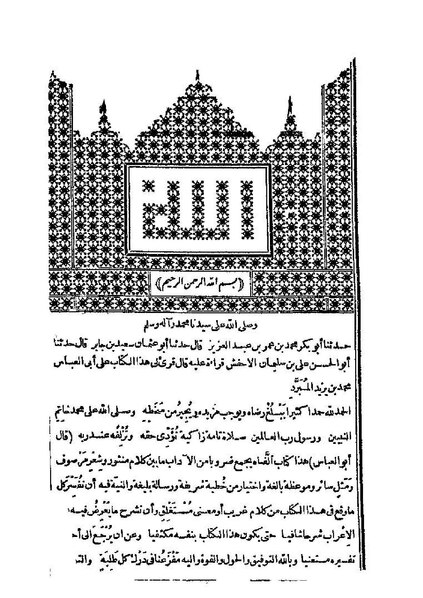 الله
﴿بسم الله الرحمن الرحيم﴾
وصلى الله على سيدنا محمد وآله وسلم
حدثنا أبو بكر محمد بن عمر بن عبد العزيز قال حدثنا أبو عثمان سعيد بن جابر قال حدثنا
أبو الحسن علي بن سليمان الاخفش قراءة عليه قال قرئ لي هذا الكتاب على أبي العباس
محمد بن يزيد المبرد
الحمد لله حمدا كثيرا يبلغ رضاه ويوجب مزيده ويجير من سخطه وصلى الله على محمد خاتم
النبيين ورسول رب العالمين صلاة تامة زاكية تؤدى حقه وتزلفه عند ربه (قال
أبو العباس) هذا كتاب ألفناه يجمع ضروبا من الآداب ما بين كلام منثور وشعر مرصوف
ومثل سائر وموعظة بالغة واختيار من خطبة شريفة ورسالة بليغة والنية فيه أن نفسر كل
ما وقع في هذا الكتاب من كلام غريب أو معنى مستغلق وأن نشرح ما يعرض فيه
الاعراب شرحا شافيا حتى يكون هذا الكتاب بنفسه مكتفيا وعن ان يرجع الى أحد
تفسيره مستغنيا وبالله التوفيق والحول والقوة واليه مفزعنا في درك كل طلبة والتو